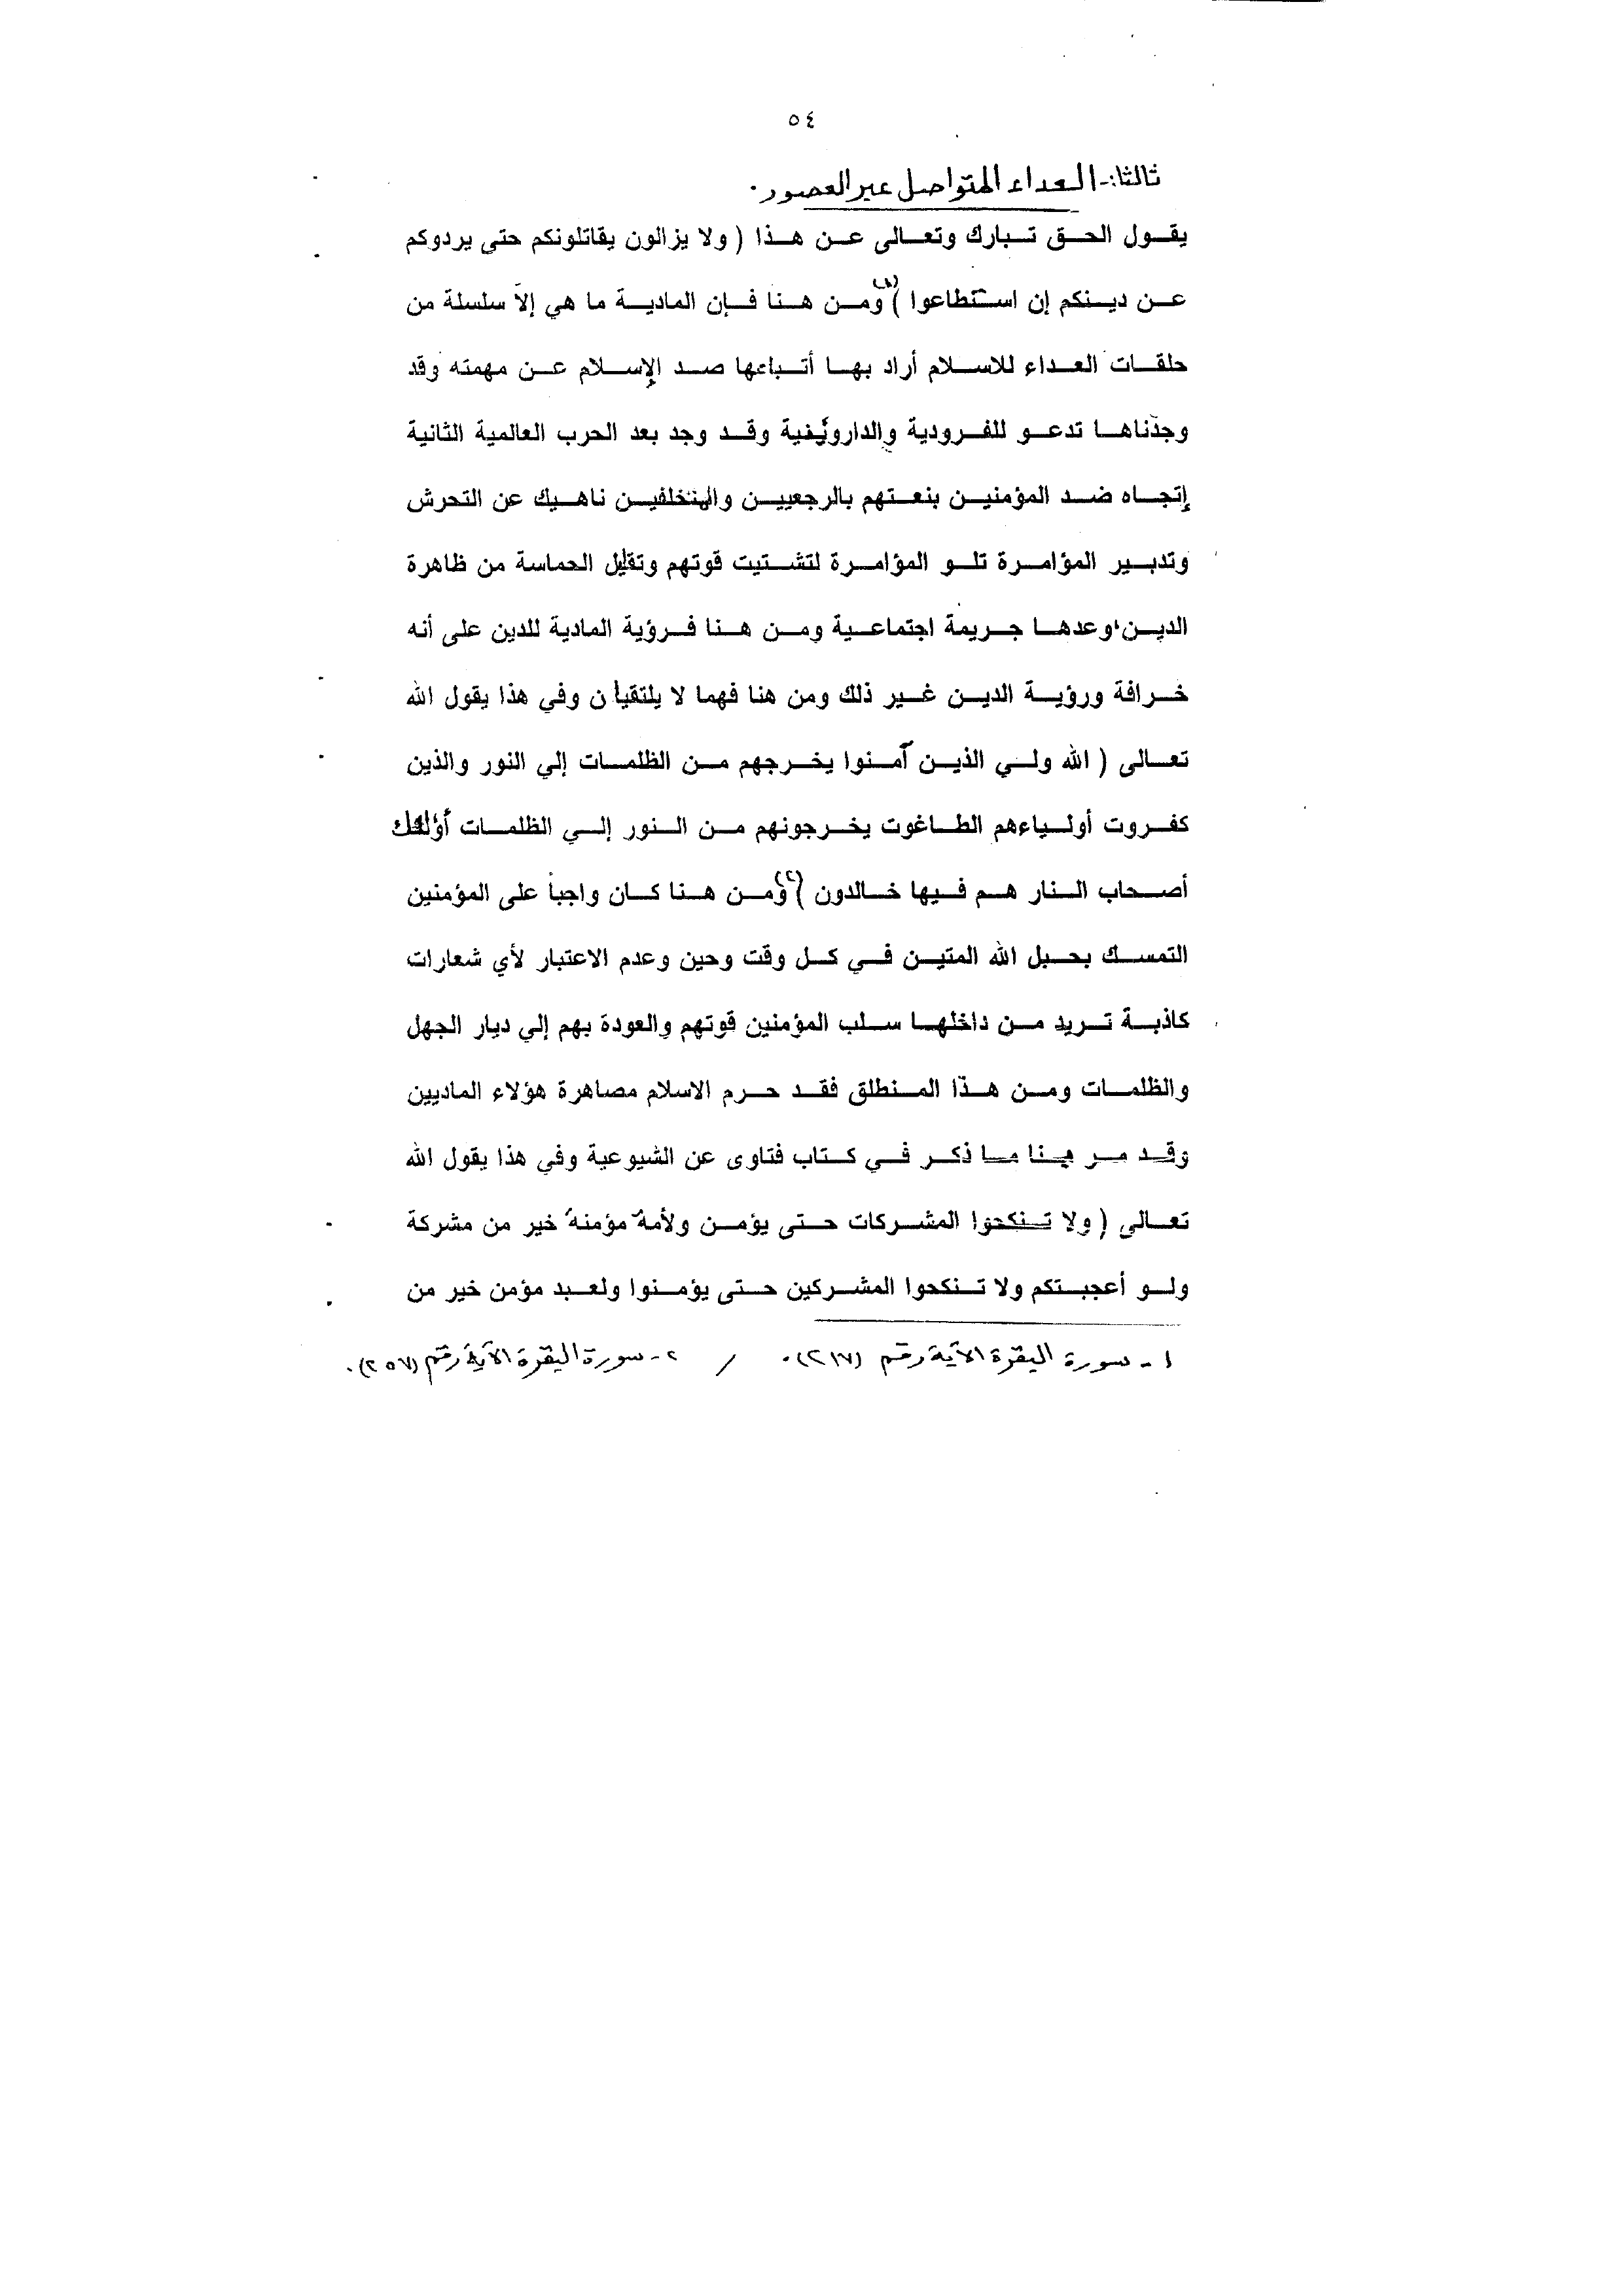 ٥٤
ثالثا:- العداء المتواصل عبر العصور.
يقول الحق تبارك وتعالى عن هذا ( ولا يزالون يقاتلونكم حتى يردوكم
عن دينكم إن استطاعوا )(١) ومن هنا فإن المادية ما هي إلا سلسلة من
حلقات العداء للاسلام أراد بها أتباعها صد الإسلام عن مهمته وقد
وجدناها تدعو للفرودية والداروينية وقد وجد بعد الحرب العالمية الثانية
إتجاه ضد المؤمنين بنعتهم بالرجعيين والمتخلفين ناهيك عن التحرش
وتدبير المؤامرة تلو المؤامرة لتشتيت قوتهم وتقليل الحماسة من ظاهرة
الدين، وعدها جريمة اجتماعية ومن هنا فرؤية المادية للدين على أنه
خرافة ورؤية الدين غير ذلك ومن هنا فهما لا يلتقيان وفي هذا يقول الله
تعالى ( الله ولي الذين آمنوا يخرجهم من الظلمات إلي النور والذين
كفروت أولياءهم الطاغوت يخرجونهم من النور إلي الظلمات أولئك
أصحاب النار هم فيها خالدون )(٢) ومن هنا كان واجباً على المؤمنين
التمسك بحبل الله المتين في كل وقت وحين وعدم الاعتبار لأي شعارات
كاذبة تريد من داخلها سلب المؤمنين قوتهم والعودة بهم إلي ديار الجهل
والظلمات ومن هذا المنطلق فقد حرم الاسلام مصاهرة هؤلاء الماديين
وقد مر بنا ما ذكر في كتاب فتاوى عن الشيوعية وفي هذا يقول الله
تعالى ( ولا تنكحوا المشركات حتى يؤمن ولأمة مؤمنة خير من مشركة
ولو أعجبتكم ولا تنكحوا المشركين حتى يؤمنوا ولعبد مؤمن خير من
١- سورة البقرة الآية رقم (٢١٧). / ٢- سورة البقرة الآية رقم (٢٥٧).